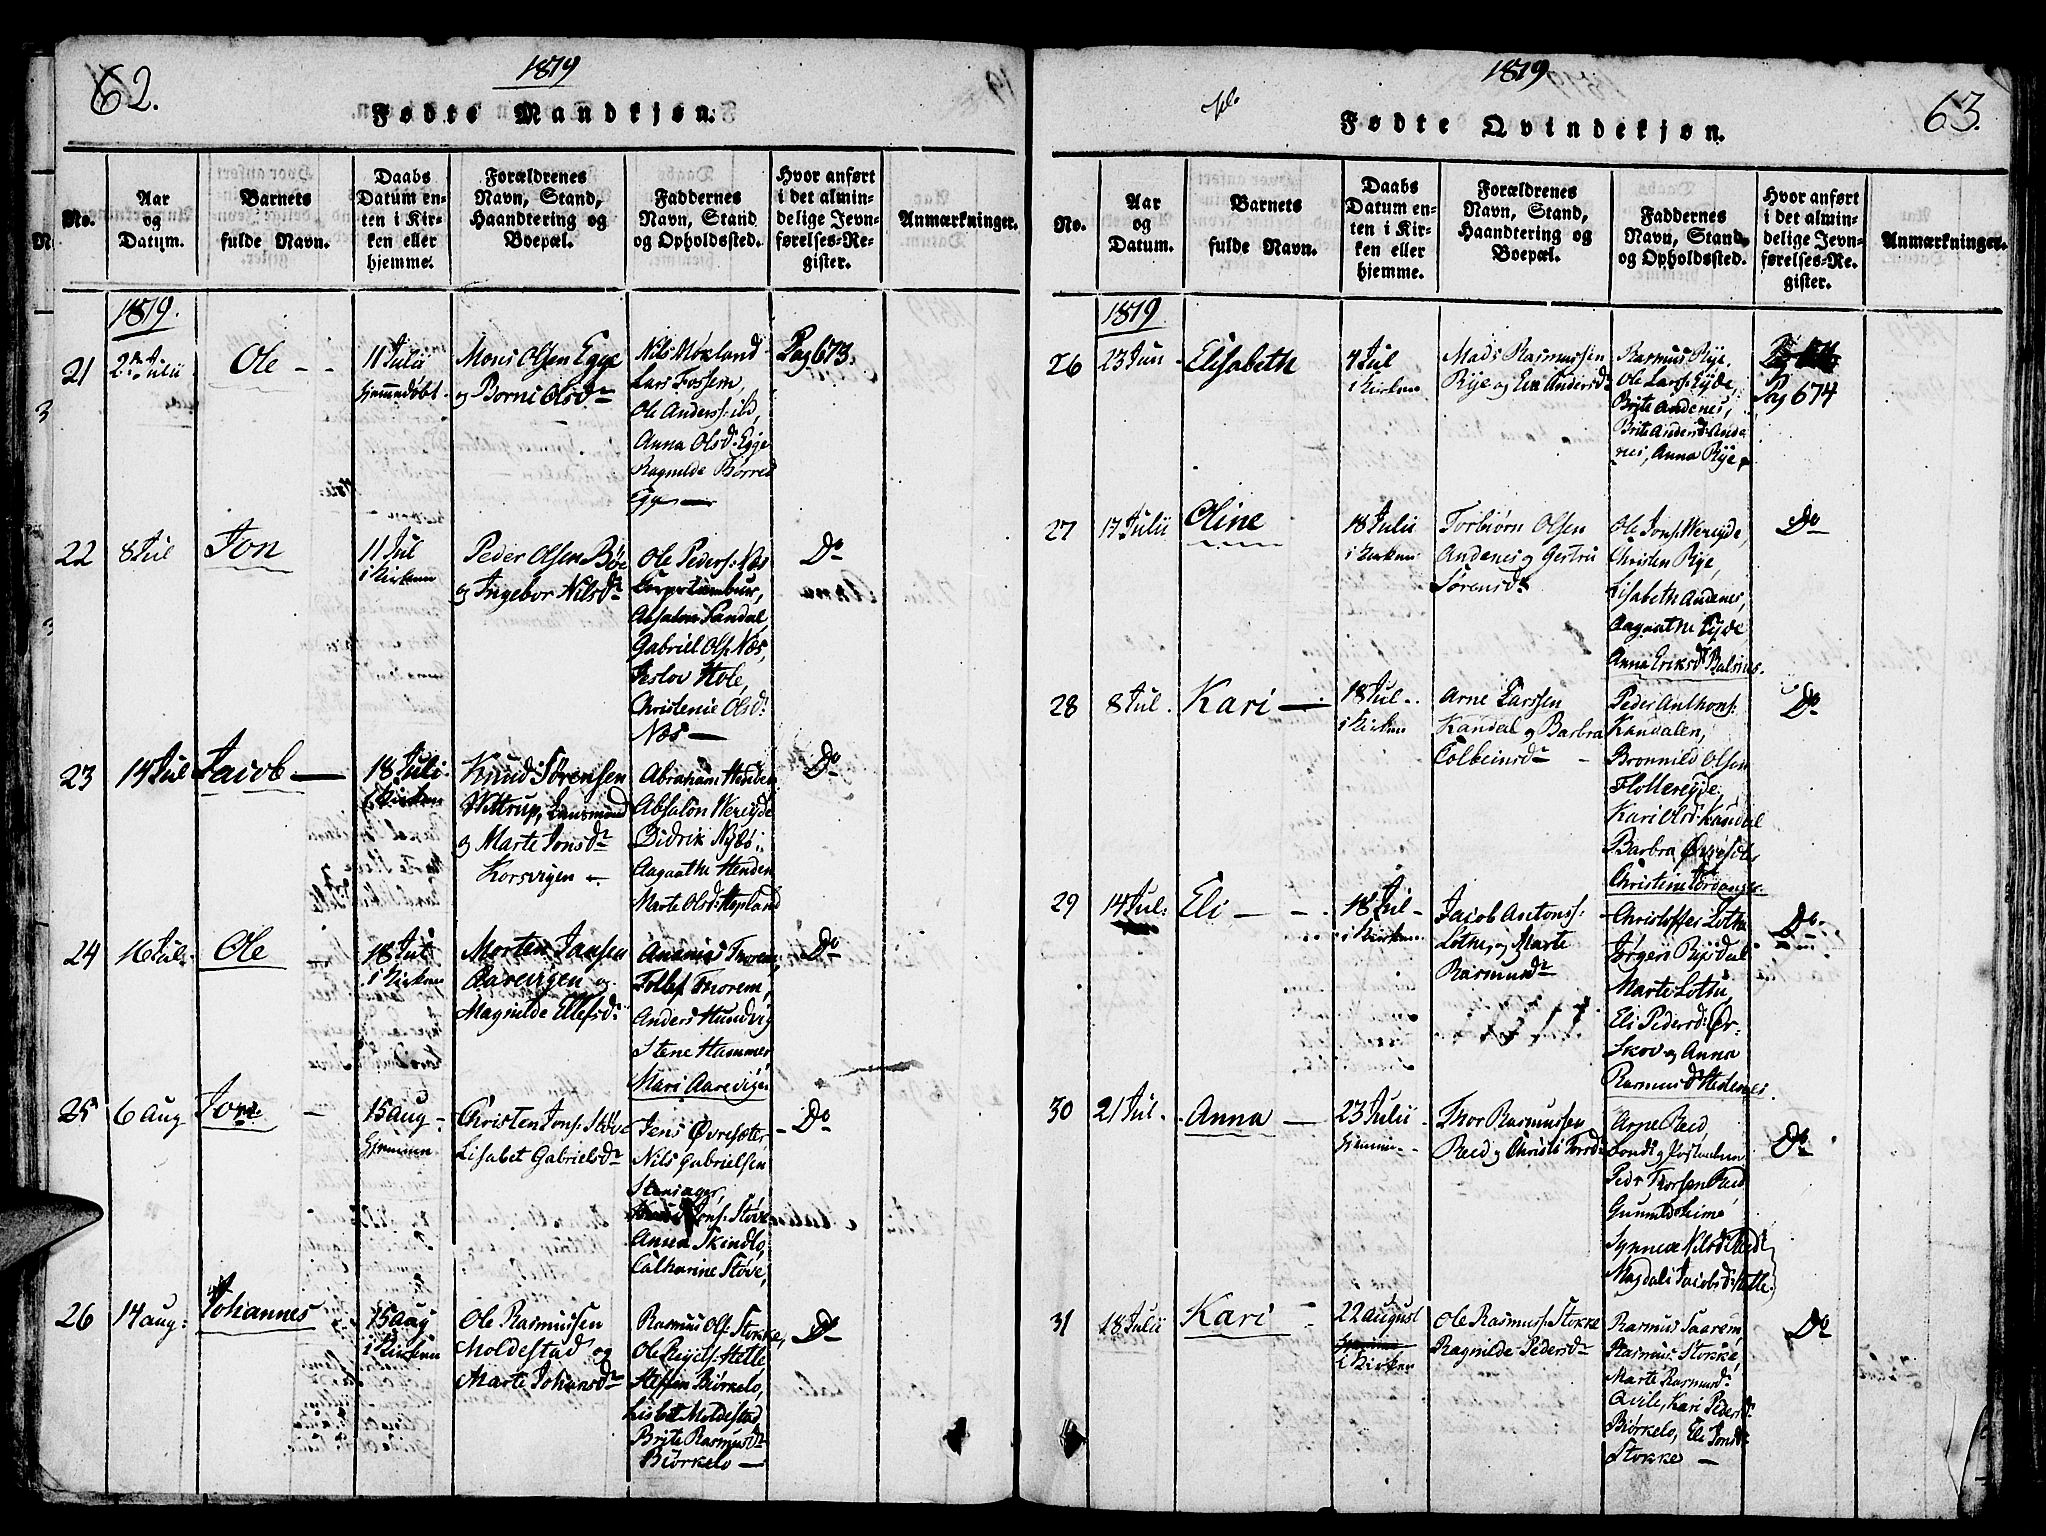 62.
1819
Fødte Mandkjøn.
No.
Aar
og
Datum.
Barnets
fulde Navn.
Daabs
Datum en-
ten i Kir-
ken eller
hjemme.
Forældrenes
Navn, Stand,
Haandtering og
Boepæl.
Faddernes
Navn, Stand
og Opholdssted.
Hvor anført
i det almin-
delige Jevn-
førelses-Re-
gister.
Anmærkninger.
1819.
21
2 Julii
Ole
11 Julii
hjemmedøbt
Mons Olsen Egge
og Borni Olsdr
Nils Moxland
Lars Fossem,
Ole Anders:
Anna Olsd: Egge
Ragnilde Børred
Egge
Pag 673.
22
8 Jul
Jon
11 Jul
i Kirken
Peder Olsen Bø
og Ingebor Nilsdr
Ole Peders: Næs
Absalon Sandal,
Gabriel Ols: Næs,
Jeslov Hole,
Christenie Olsd:
Næs
Do
23
14 Jul
Jacob
18 Juli
i Kirken
Knud Sørensen
Wittrup, Lænsmand
og Marte Jonsdr
Korsvigen
Abraham Henden
Absalon Wereyde
Didrik Nybø
Aagaathe Henden
Marte Olsd: Hepland
Do
24
16 Jul
Ole
18 Jul
i Kirken
Morten Jansen
Aarevigen og
Magnilde Ellefsd:
Ananias Thorem,
Tollef Thorem,
Anders Hundvig
Stene Hammer
Mari Aarevigen
Do
25
6 Aug
Jon
15 aug
hjemme
Christen Jons: Støve
Lisabet Gabrielsdr
Jens Øvresæter
Nils Gabrielsen
Steniager,
Jons: Støve
Anna Skindlo,
Catharine Støve,
Do
26
14 aug:
Johannes
15 aug
i Kirken
Ole Rasmussen
Moldestad og
Marte Johansdr
Rasmus Ols: Stokke,
Ole Reiels: Helle
Steffen Biørkelo,
Lisbet Moldestad
Brite Rasmusdr
Biørkelo
Do
63.
1819
Fødte Qvindekjøn.
No.
Aar
og
Datum.
Barnets
fulde Navn.
Daabs
Datum en-
ten i Kir-
ken eller
hjemme.
Forældrenes
Navn, Stand,
Haandtering og
Boepæl.
Faddernes
Navn, Stand,
og Opholdssted.
Hvor anført
i det almin-
delige Jevn-
førelses-Re-
gister.
Anmærkninger.
1819
26
23 Jun
Elisabeth
4 Jul
i Kirken
Mads Rasmussen
Rye og Eva Andersdr
Rasmus Rye,
Ole Lars: Eyde,
Brite Andenes,
Brite Andersd: Ande
nes, Anna Rye
Pag 674
27
17 Julii
Oline
18 Julii
i Kirken
Torbiørn Olsen
Andenes og Gertru
Sørensdr
Ole Jons: Wereyde,
Christen Rye,
Lisabeth Andenes,
Aagaathe Eyde
Anna Eriksd: Balsnes.
Do
28
8 Jul
Kari
18 Jul
i Kirken
Arne Larssen
Kandal og Barbra
Colbeinsdr
Peder Anthons:
Kandalen,
Bronnild Olsen
Flollereyde,
Kari Olsd: Kandal
Barbra
Christine
Do
29
14 Jul:
Eli
18 Jul
i Kirken
Jacob Antons:
Lothe, og Marte
Rasmusdr
Christoffer Lothe
Jørgen Ryssdal
Marte Lothe
Eli Pedersd: Ør-
skov og Anna
Rasmusd: Hedenes.
Do
30
21 Jul
Anna
23 Julii
hjemme
Thor Rasmussen
Reed og Christi Torsdr
Arne Reed
Peder Thorsen Reed
Synneve Nilsd: Reed
Magdali Jacobsd: Hetle
Do
31
18 Julii
Kari
22 august
i Kirken
Ole Rasmuss: Stokke
Ragnilde Pedersdr
Rasmus Saarem
Rasmus Stokke,
Marte Rasmusd:
Qvile, Kari Pedersd:
Biørkelo, Eli Jonsd:
Stokke
Do